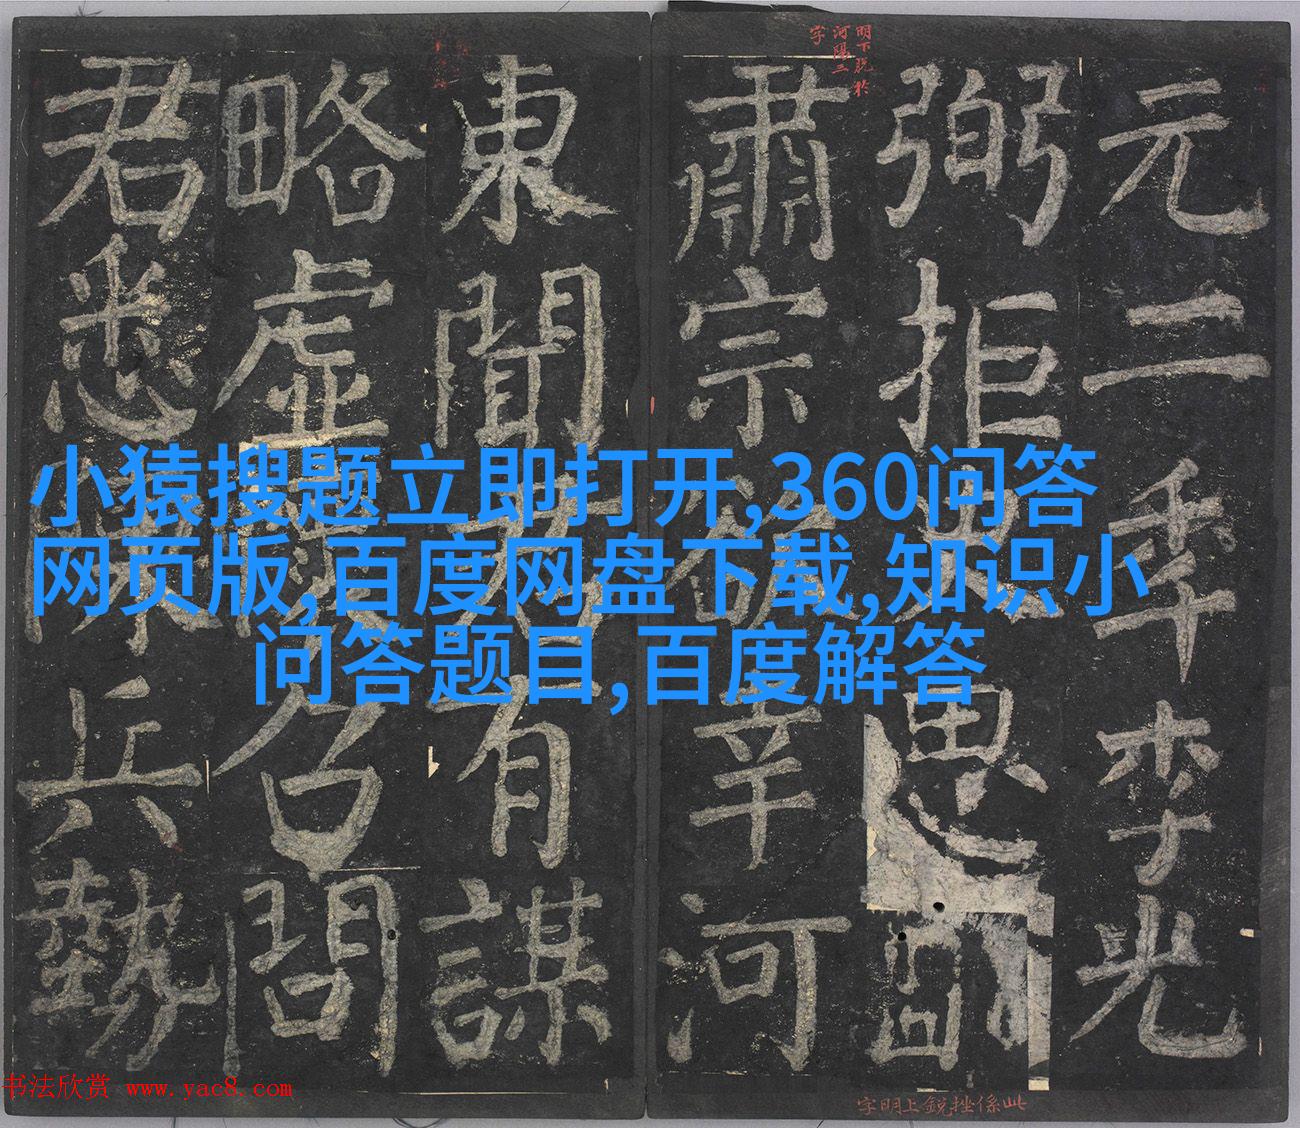 明下脫於
河陽二
字
元二年李光
弼拒史思明
肅宗幸河
東聞君有謀
略虛懷召問
君悉陳兵勢
此係挫銳上明字
小猿搜题立即打开,360问答
网页版,百度网盘下载,知识小
问答题目,百度解答
书法欣赏 www.yac8.com